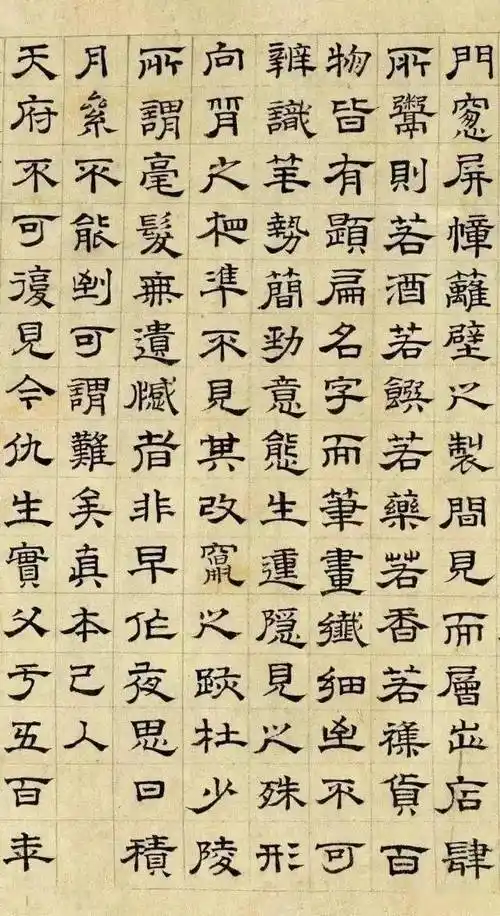 門窻屏幛籬壁之製間見而層出店肆
所鬻則若酒若饌若藥若香若襍貨百
物皆有題扁名字而筆畫纖細至不可
辨識茟勢簡勁意態生運隱見之殊形
向背之準不見其改竄之跡杜少陵
所謂毫髮無遺憾者非早作夜思日積
月絫不能到可謂難矣真本已入
天府不可復見今仇生實父亏五百年